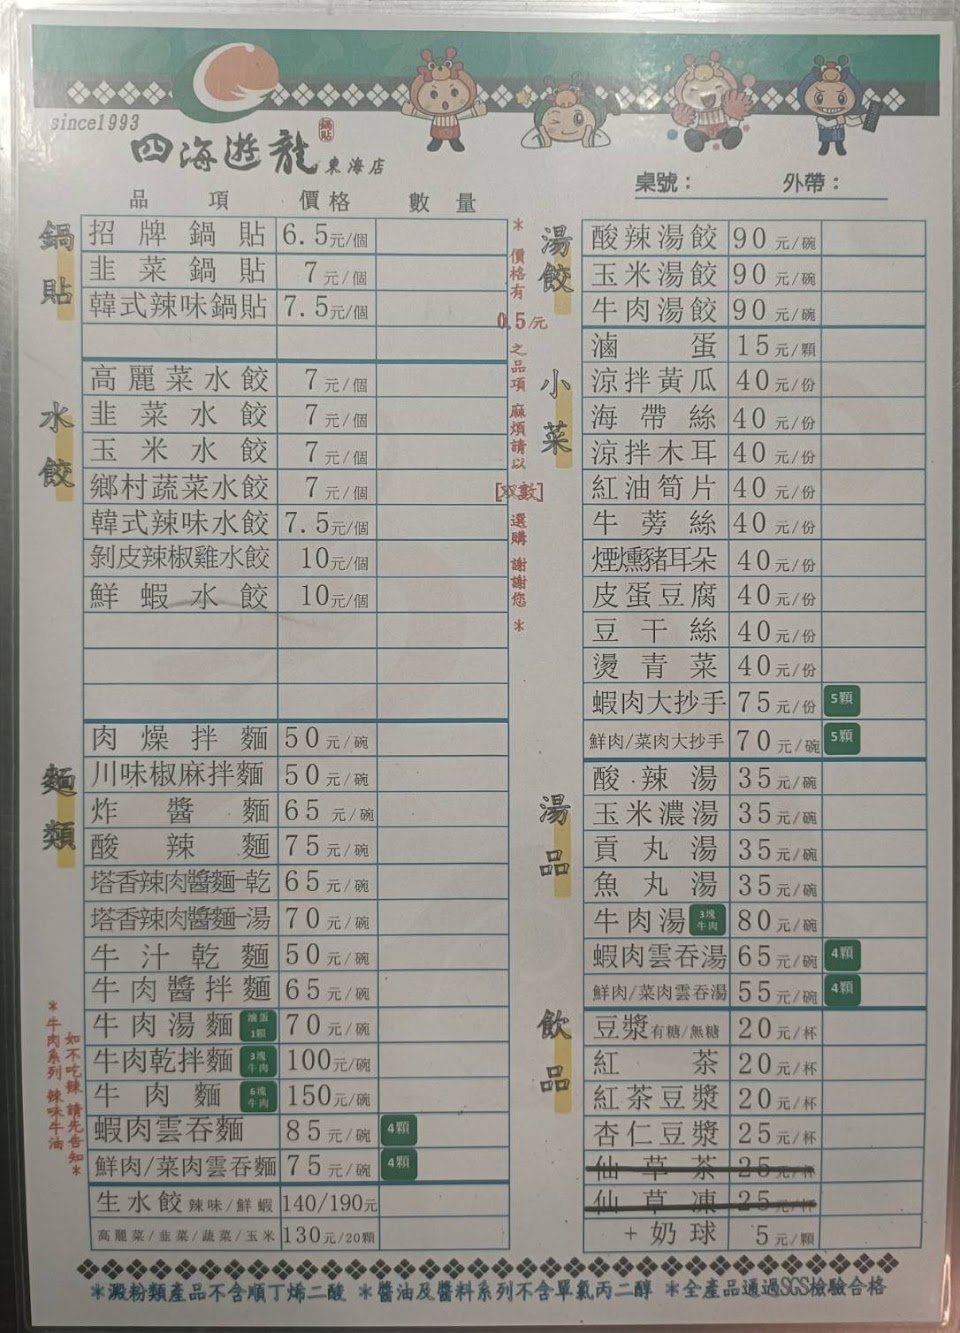 since1993
四海遊龍 鍋貼 東海店
桌號： 外帶：
品項 價格 數量
鍋貼
招牌鍋貼 6.5元/個
韭菜鍋貼 7元/個
韓式辣味鍋貼 7.5元/個
水餃
高麗菜水餃 7元/個
韭菜水餃 7元/個
玉米水餃 7元/個
鄉村蔬菜水餃 7元/個
韓式辣味水餃 7.5元/個
剝皮辣椒雞水餃 10元/個
鮮蝦水餃 10元/個
麵類
肉燥拌麵 50元/碗
川味椒麻拌麵 50元/碗
炸醬麵 65元/碗
酸辣麵 75元/碗
塔香辣肉醬麵-乾 65元/碗
塔香辣肉醬麵-湯 70元/碗
牛汁乾麵 50元/碗
牛肉醬拌麵 65元/碗
牛肉湯麵 滷蛋1顆 70元/碗
牛肉乾拌麵 3塊牛肉 100元/碗
牛肉麵 6塊牛肉 150元/碗
蝦肉雲吞麵 85元/碗 4顆
鮮肉/菜肉雲吞麵 75元/碗 4顆
生水餃 辣味/鮮蝦 140/190元
高麗菜/韭菜/蔬菜/玉米 130元/20顆
*牛肉系列 辣味牛油
如不吃辣 請先告知*
* 價格有 0.5/元 之品項 麻煩請以 [双數] 選購 謝謝您 *
湯餃
酸辣湯餃 90元/碗
玉米湯餃 90元/碗
牛肉湯餃 90元/碗
小菜
滷蛋 15元/顆
涼拌黃瓜 40元/份
海帶絲 40元/份
涼拌木耳 40元/份
紅油筍片 40元/份
牛蒡絲 40元/份
煙燻豬耳朵 40元/份
皮蛋豆腐 40元/份
豆干絲 40元/份
燙青菜 40元/份
蝦肉大抄手 75元/份 5顆
鮮肉/菜肉大抄手 70元/碗 5顆
湯品
酸辣湯 35元/碗
玉米濃湯 35元/碗
貢丸湯 35元/碗
魚丸湯 35元/碗
牛肉湯 3塊牛肉 80元/碗
蝦肉雲吞湯 65元/碗 4顆
鮮肉/菜肉雲吞湯 55元/碗 4顆
飲品
豆漿 有糖/無糖 20元/杯
紅茶 20元/杯
紅茶豆漿 20元/杯
杏仁豆漿 25元/杯
仙草茶 25元/杯
仙草凍 25元/杯
+奶球 5元/顆
*澱粉類產品不含順丁烯二酸 *醬油及醬料系列不含單氯丙二醇 *全產品通過SGS檢驗合格